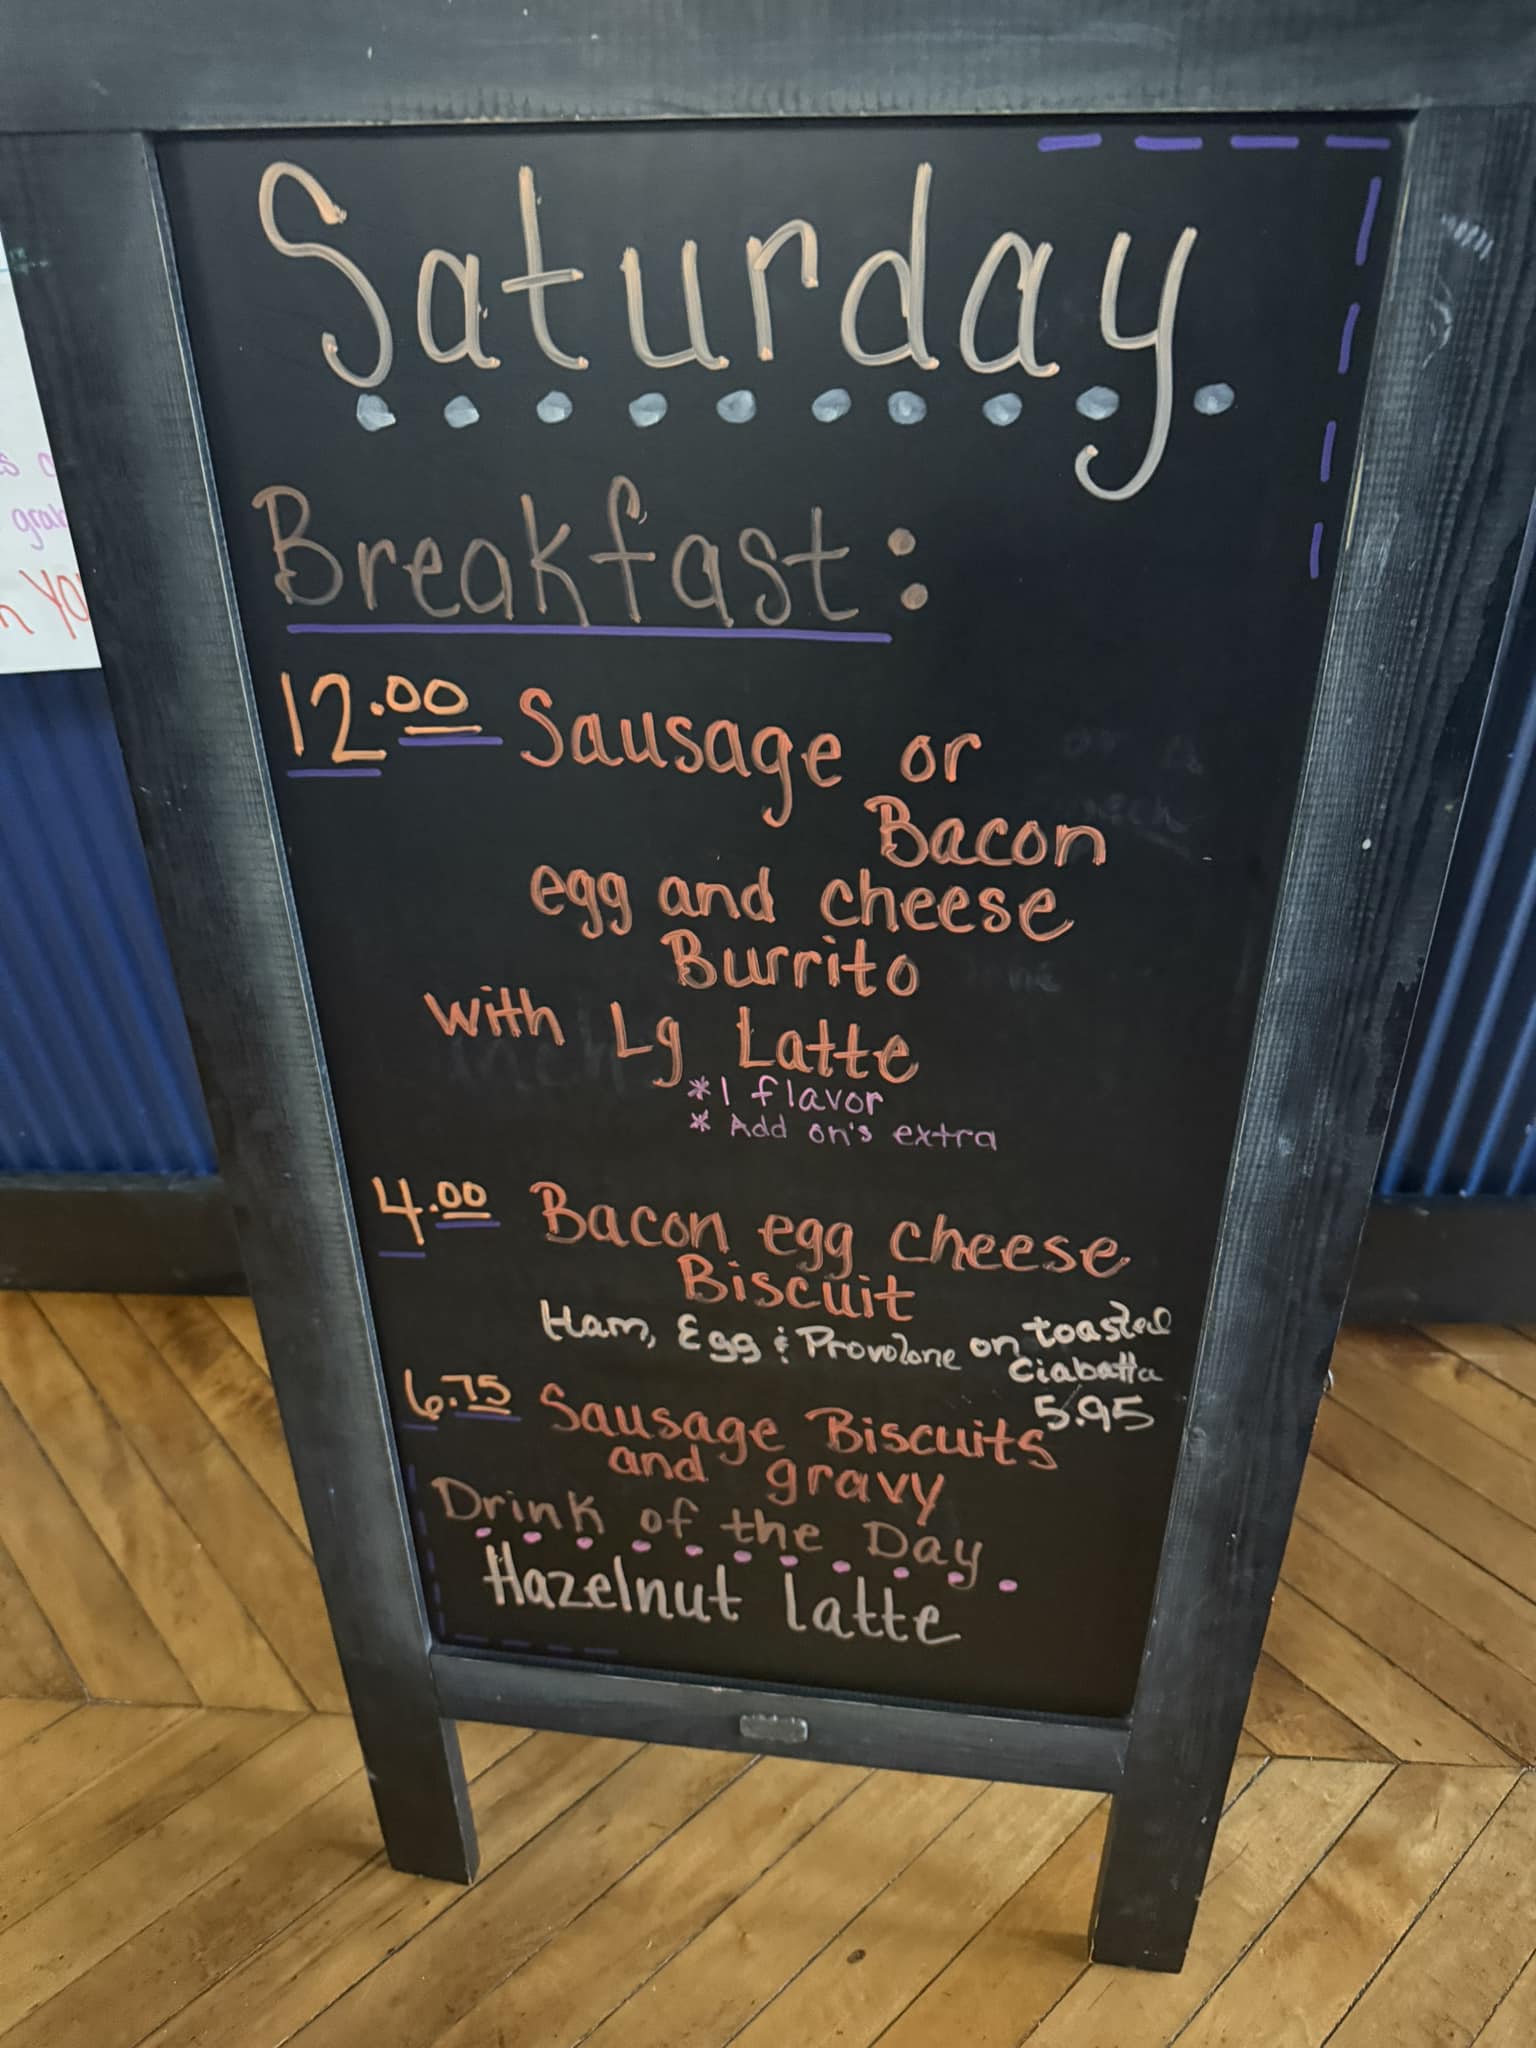 Saturday
Breakfast:
12.00 Sausage or
Bacon
egg and cheese
Burrito
with Lg Latte
*1 flavor
* Add on's extra
4.00 Bacon egg cheese
Biscuit
Ham, Egg & Provolone on toasted
Ciabatta
5.95
6.75 Sausage Biscuits
and gravy
Drink of the Day
Hazelnut latte